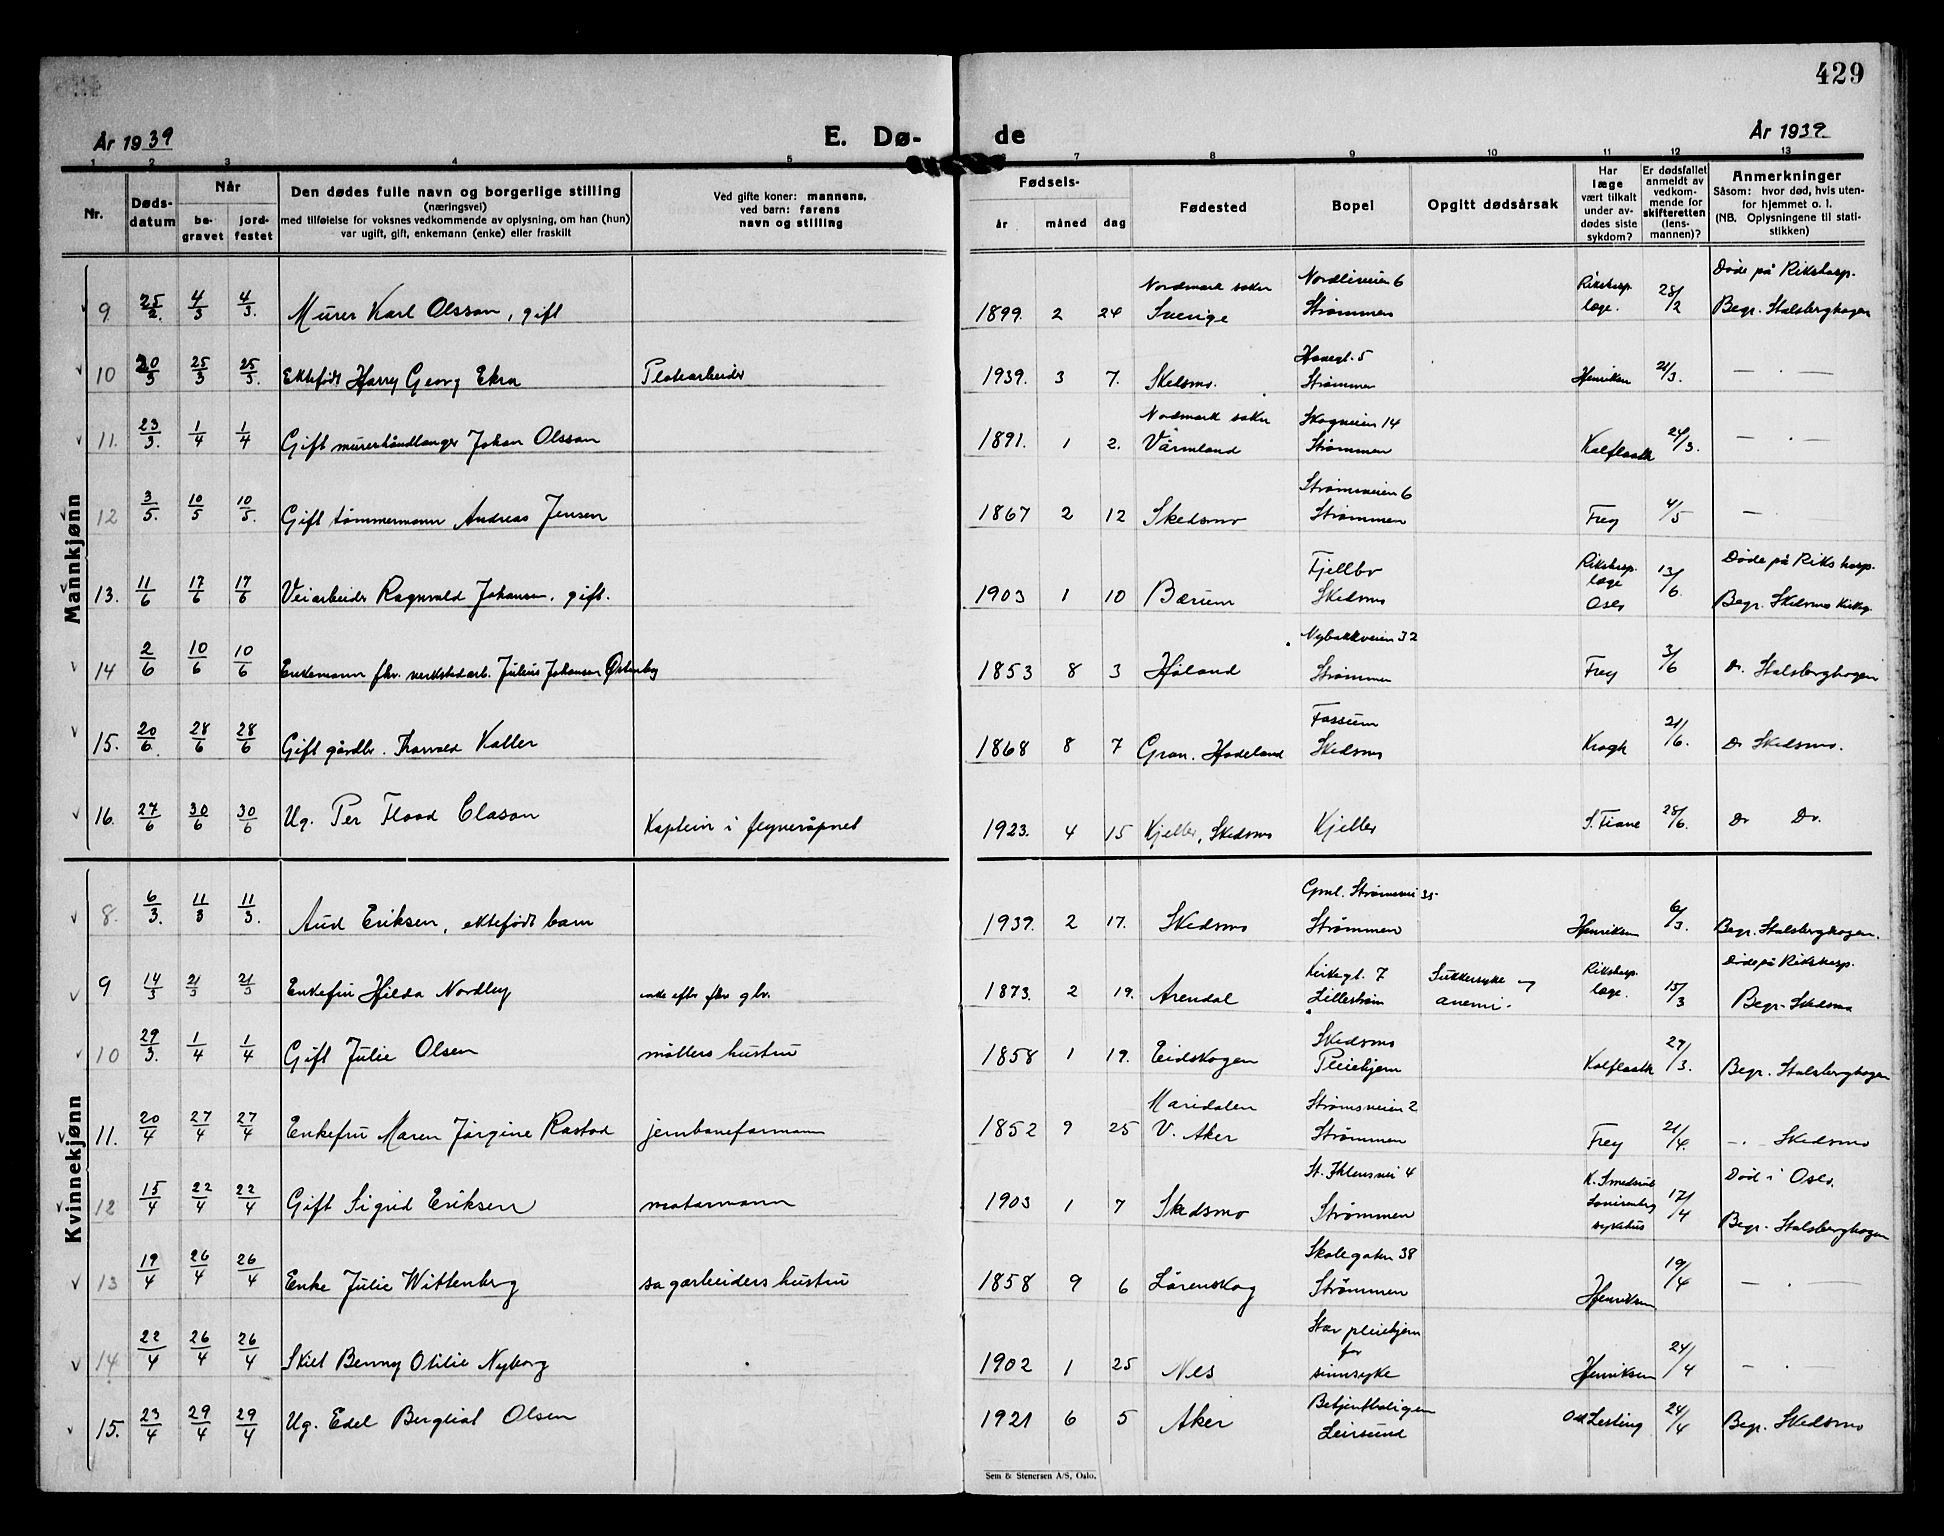 429
År 1939
E. Dø-
de
År 1939
1 2 3 4 5 6 7 8 9 10 11 12 13
Nr.
Døds-
datum
Når
be-
gravet
jord-
festet
Den dødes fulle navn og borgerlige stilling
(næringsvei)
med tilføielse for voksnes vedkommende av oplysning, om han (hun)
var ugift, gift, enkemann (enke) eller fraskilt
Ved gifte koner: mannens,
ved barn: farens
navn og stilling
Fødsels-
år måned dag
Fødested
Bopel
Opgitt dødsårsak
Har
læge
vært tilkalt
under av-
dødes siste
sykdom?
Er dødsfallet
anmeldt av
vedkom-
mende for
skifteretten
(lens-
mannen)?
Anmerkninger
Såsom: hvor død, hvis uten-
for hjemmet o. l.
(NB. Oplysningene til stati-
stikken)
Mannkjønn
9. 25/2. 4/3 4/3. Murer Karl Olsson, gift 1899. 2 24 Nordmark sokn Sverige Nordliveien 6 Strømmen Rikshosp. læge. 28/2 Døde på Rikshosp. Begr. Stalsberghagen
10 20/3 25/3 25/3. Ektefødt Harry Georg Ekra Platearbeider 1939. 3 7. Skedsmo. Havegt. 5 Strømmen Henriksen 21/3. — . —
11. 23/3. 1/4 1/4 Gift murerhåndlanger Johan Olsson 1891. 1 2. Nordmark sokn Värmland Skogveien 14 Strømmen Kalflaath 24/3. — . —
12 3/5. 10/5 10/5. Gift tømmermann Andreas Jensen 1867 2 12 Skedsmo Strømsveien 6 Strømmen Frey 4/5 —
13. 11/6 17/6 17/6 Veiarbeider Ragnvald Johansen, gift. 1903 1 10 Bærum Fjellbo Skedsmo Rikshosp. læge Oslo 13/6. Døde på Rikshosp. Begr. Skedsmo Kirkeg.
14 2/6 10/6 10/6 Enkemann fhv. verkstedarb. Julius Johansen Østenby 1853 8 3 Høland Nybakkveien 32 Strømmen Frey 3/6 Do. Stalsberghagen
15. 20/6. 28/6 28/6 Gift gårdbr. Thorvald Koller 1868 8 7 Gran. Hadeland Fossum Skedsmo Krogh 21/6. Do Skedsmo.
16. 27/6 30/6 30/6 Ug. Per Flood Clason Kaptein i flyvevåpnet 1923. 4 15 Kjeller, Skedsmo Kjeller 28/6. Do Do.
Kvinnekjønn
8. 6/3. 11/3 11/3. Aud Eriksen, ektefødt barn 1939. 2 17. Skedsmo Gml. Strømsvei 35 Strømmen Henriksen 6/3. Begr. Stalsberghagen.
9 14/3 21/3 21/3 Enkefru Hilda Nordby enke efter fhv. gbr. 1873. 2 19. Arendal Kirkegt. 7 Lillestrøm Sukkersyke og anemi. Rikshosp. læge. 15/3 Døde på Rikshosp. Begr. Skedsmo
10 29/3. 1/4 1/4 Gift Julie Olsen møllers hustru 1858 1 19. Eidskogen Skedsmo Pleiehjem Kalflaath 29/3. Begr. Stalsberghagen
11. 20/4 27/4 27/4 Enkefru Maren Jørgine Rastad jernbaneformann 1852 9 25 Maridalen V. Aker Strømsveien 2 Strømmen Frey 21/4. —.— Skedsmo
12 15/4 22/4 22/4 Gift Sigrid Eriksen motormann 1903 1 7 Skedsmo Strømmen sykehus 17/4 Død i Oslo. Begr. Stalsberghagen
13 19/4 26/4 26/4 Enke Julie Wittenberg sagarbeiders hustru 1858 9 6 Lørenskog Skolegaten 38 Strømmen Henriksen 19/4 — . —
14 22/4 26/4 26/4 Skilt Benny Otilie Nyborg 1902 1 25 Nes pleiehjem for sinnsyke Henriksen 24/4 — .
15. 23/4 29/4 29/4 Ug. Edel Bergliot Olsen 1921 6 5 Aker Betjentboligen Leirsund 24/4 Begr. Skedsmo
Sem & Stenersen A/S, Oslo.